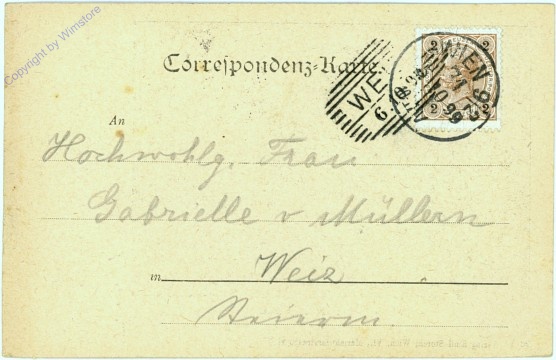 Copyright by Wimstore
Correspondenz-Karte
WIEN
2 2
2 2
WE
6
99
An
Hochwohlg. Frau
Gabrielle v Müllern
in Weiz
Steierm.